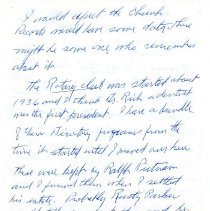 I would expect the Church
Records would have some data, there
might be some one who remembers
about it.
The Rotary club was started about
1936 and I think Dr. Rich a dentist
was the first president. I have a bundle
of their Directory programs from the
time it started until I moved over here
These were kept by Ralph Putnam
and I found them when I settled
his estate. Probably Rusty Barber